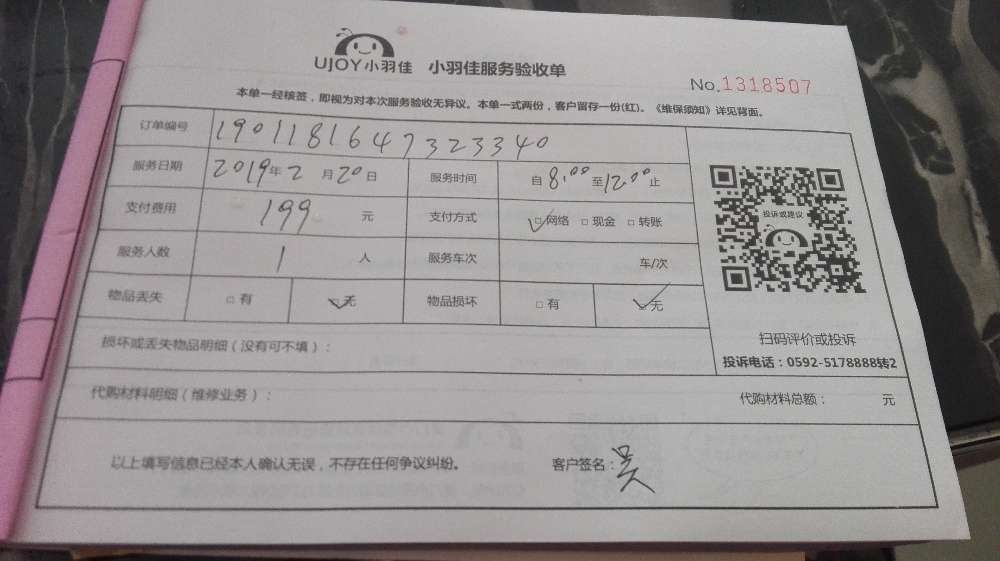 UJOY小羽佳 小羽佳服务验收单
No.1318507
本单一经核签，即视为对本次服务验收无异议。本单一式两份，客户留存一份(红)。《维保须知》详见背面。
订单编号 1901181647323340
服务日期 2019年2月20日 服务时间 自8:00至12:00止
支付费用 199元 支付方式 ☑网络 □现金 □转账
服务人数 1人 服务车次 车/次
物品丢失 □有 ☑无 物品损坏 □有 ☑无
损坏或丢失物品明细（没有可不填）：
投诉或建议
扫码评价或投诉
投诉电话：0592-5178888转2
代购材料明细（维修业务）： 代购材料总额： 元
以上填写信息已经本人确认无误，不存在任何争议纠纷。 客户签名：吴